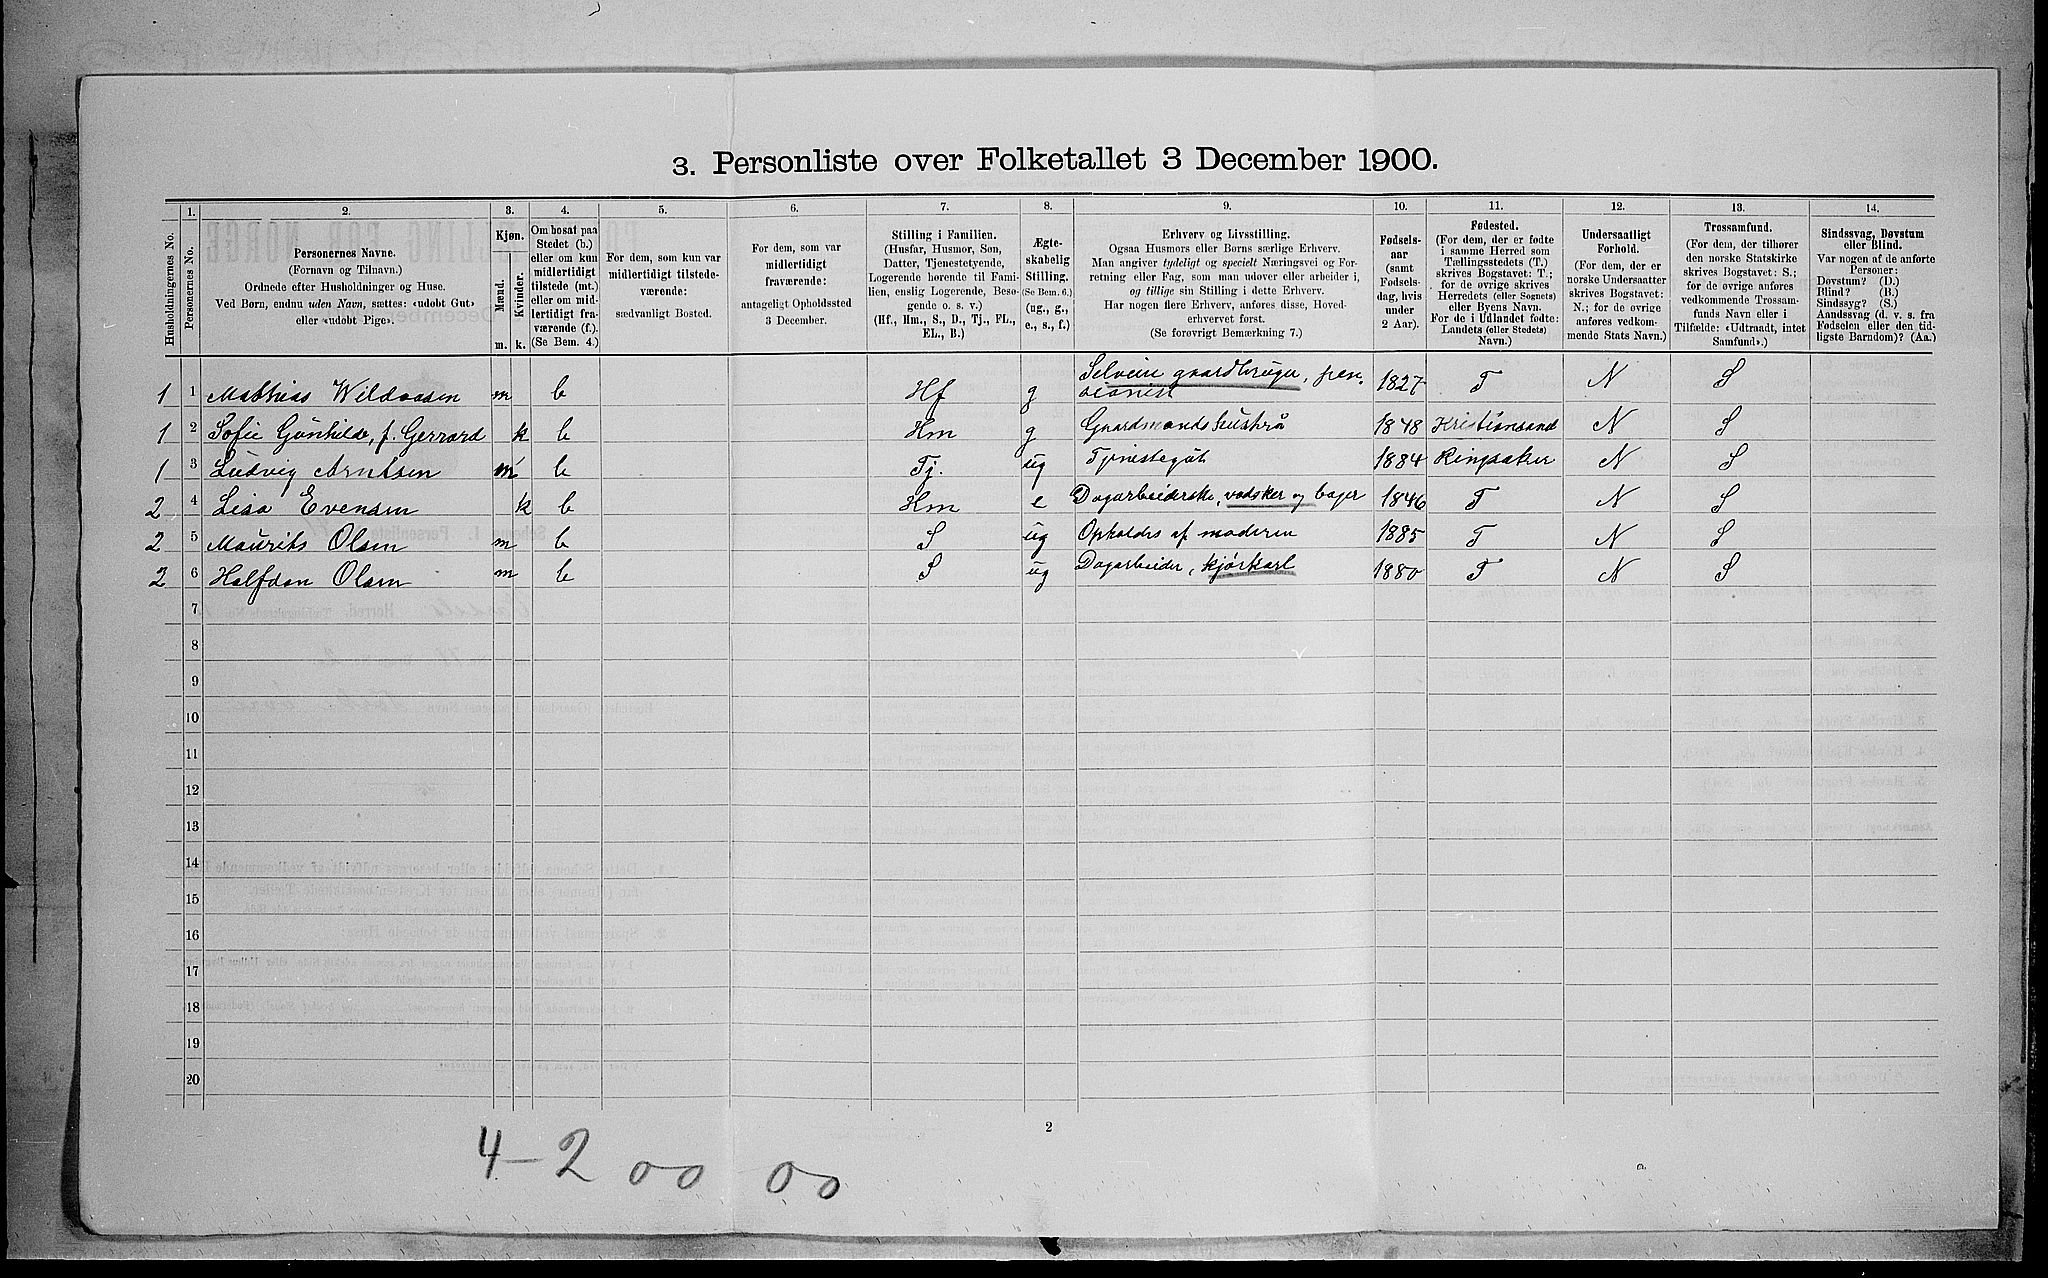 3. Personliste over Folketallet 3 December 1900.
1. 2. 3. 4. 5. 6. 7. 8. 9. 10. 11. 12. 13. 14.
Husholdningernes No.
Personernes No.
Personernes Navne.
(Fornavn og Tilnavn.)
Ordnede efter Husholdninger og Huse.
Ved Børn, endnu uden Navn, sættes: «udøbt Gut»
eller «udøbt Pige».
Kjøn.
Mænd.
Kvinder.
m. k.
Om bosat paa
Stedet (b.)
eller om kun
midlertidigt
tilstede (mt.)
eller om mid-
lertidigt fra-
værende (f.).
(Se Bem. 4.)
For dem, som kun var
midlertidigt tilstede-
værende:
sædvanligt Bosted.
For dem, som var
midlertidigt
fraværende:
antageligt Opholdssted
3 December.
Stilling i Familien.
(Husfar, Husmor, Søn,
Datter, Tjenestetyende,
Logerende hørende til Fami-
lien, enslig Logerende, Besø-
gende o. s. v.)
(Hf., Hm., S., D., Tj., FL.,
EL., B.)
Ægte-
skabelig
Stilling.
(Se Bem. 6.)
(ug., g.,
e., s., f.)
Erhverv og Livsstilling.
Ogsaa Husmors eller Børns særlige Erhverv.
Man angiver tydeligt og specielt Næringsvei og For-
retning eller Fag, som man udøver eller arbeider i,
og tillige sin Stilling i dette Erhverv.
Har nogen flere Erhverv, anføres disse, Hoved-
erhvervet først.
(Se forøvrigt Bemærkning 7.)
Fødsels-
aar
(samt
Fødsels-
dag, hvis
under
2 Aar).
Fødested.
(For dem, der er fødte
i samme Herred som
Tællingsstedets (T.)
skrives Bogstavet: T.;
for de øvrige skrives
Herredets (eller Sognets)
eller Byens Navn.
For de i Udlandet fødte:
Landets (eller Stedets)
Navn.)
Undersaatligt
Forhold.
(For dem, der er
norske Undersaatter
skrives Bogstavet:
N.; for de øvrige
anføres vedkom-
mende Stats Navn.)
Trossamfund.
(For dem, der tilhører
den norske Statskirke
skrives Bogstavet: S.;
for de øvrige anføres
vedkommende Trossam-
funds Navn eller i
Tilfælde: «Udtraadt, intet
Samfund».)
Sindssvag, Døvstum
eller Blind.
Var nogen af de anførte
Personer:
Døvstum? (D.)
Blind? (B.)
Sindssyg? (S.)
Aandssvag (d. v. s. fra
Fødselen eller den tid-
ligste Barndom)? (Aa.)
1 1 Mathias Wildvaagen m b Hf g Selveier gaardbruger, pen-
sionist 1827 T N S
1 2 Sofie Gunhilde, f. Gerrard k b Hm g Gaardmandshustru 1848 Kristiansand N S
1 3 Ludvig Arntsen m b Tj. ug Tjenestegut 1884 Ringsaker N S
2 4 Lisa Evensen k b Hm e Dagarbeiderske, vadsker og bager 1846 T N S
2 5 Maurits Olsen m b S ug Opholdes af moderen 1885 T N S
2 6 Halfdan Olsen m b S ug Dagarbeider, kjørkarl 1880 T N S
7
8
9
10
11
12
13
14
15
16
17
18
19
20
2
4-2 00 00